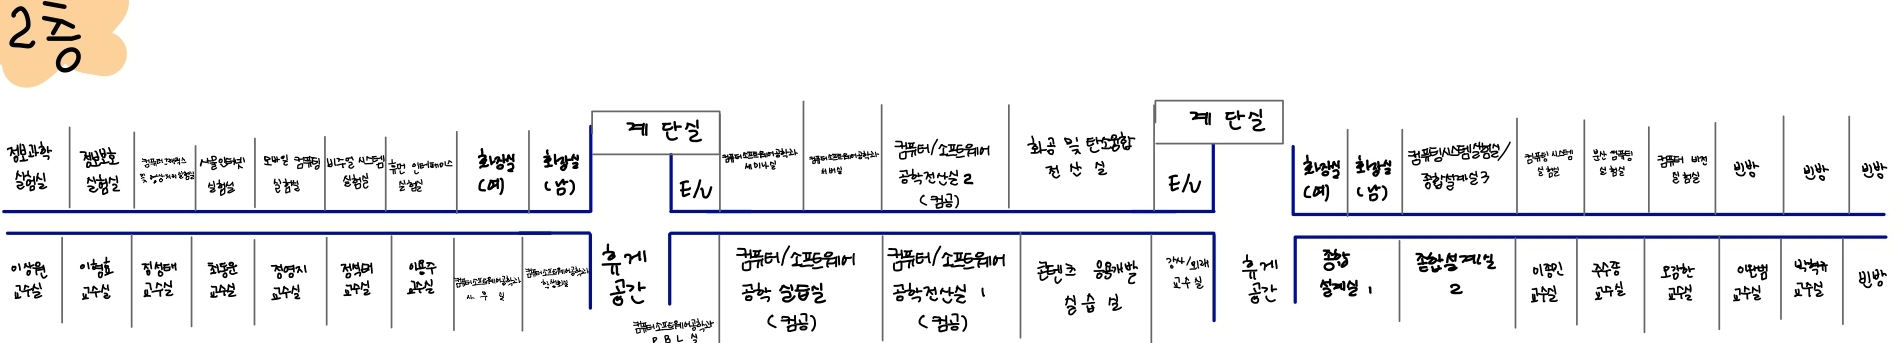 2층
정보과학
실험실
정보보호
실험실
컴퓨터그래픽스
및 영상처리 실험실
사물인터넷
실험실
모바일 컴퓨팅
실험실
비주얼 시스템
실험실
휴먼 인터페이스
실험실
화장실
(여)
화장실
(남)
계단실
E/V
컴퓨터소프트웨어공학과
세미나실
컴퓨터소프트웨어공학과
서버실
컴퓨터/소프트웨어
공학전산실 2
(컴공)
화공 및 탄소융합
전산실
계단실
E/V
화장실
(여)
화장실
(남)
컴퓨팅시스템실험실/
종합설계실3
컴퓨팅 시스템
실험실
분산 컴퓨팅
실험실
컴퓨터 비전
실험실
빈방
빈방
빈방
이상원
교수실
이협효
교수실
정성태
교수실
최동운
교수실
정영지
교수실
정석태
교수실
이용주
교수실
컴퓨터소프트웨어공학과
사무실
컴퓨터소프트웨어공학과
학생회실
휴게
공간
컴퓨터소프트웨어공학과
PBL실
컴퓨터/소프트웨어
공학 실습실
(컴공)
컴퓨터/소프트웨어
공학전산실 1
(컴공)
콘텐츠 응용개발
실습실
강사/외래
교수실
휴게
공간
종합
설계실 1
종합설계실
2
이종인
교수실
주수종
교수실
오강한
교수실
이한범
교수실
박혁규
교수실
빈방